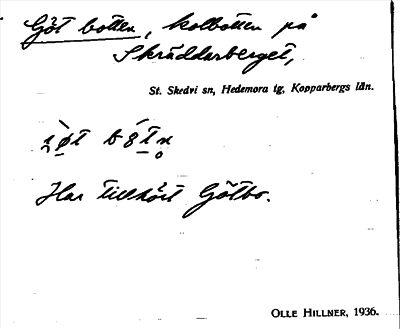 Göt botten, kolbotten på
Skräddarberget,
St. Skedvi sn, Hedemora tg, Kopparbergs län.
Har tillhört Götbo.
OLLE HILLNER, 1936.